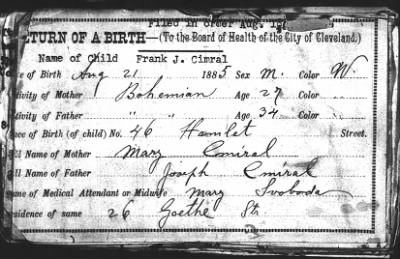 Filed in Order Aug.
TURN OF A BIRTH—(To the Board of Health of the City of Cleveland.)
Name of Child Frank J. Cimral
e of Birth Aug 21 1885 Sex M. Color W.
tivity of Mother Bohemian Age 27 Color " "
tivity of Father " " Age 34 Color " "
ce of Birth (of child) No. 46 Hamlet Street.
ll Name of Mother Mary Cmiral
ll Name of Father Joseph Cmiral
ame of Medical Attendant or Midwife Mary Svoboda
esidence of same 26 Goethe St.